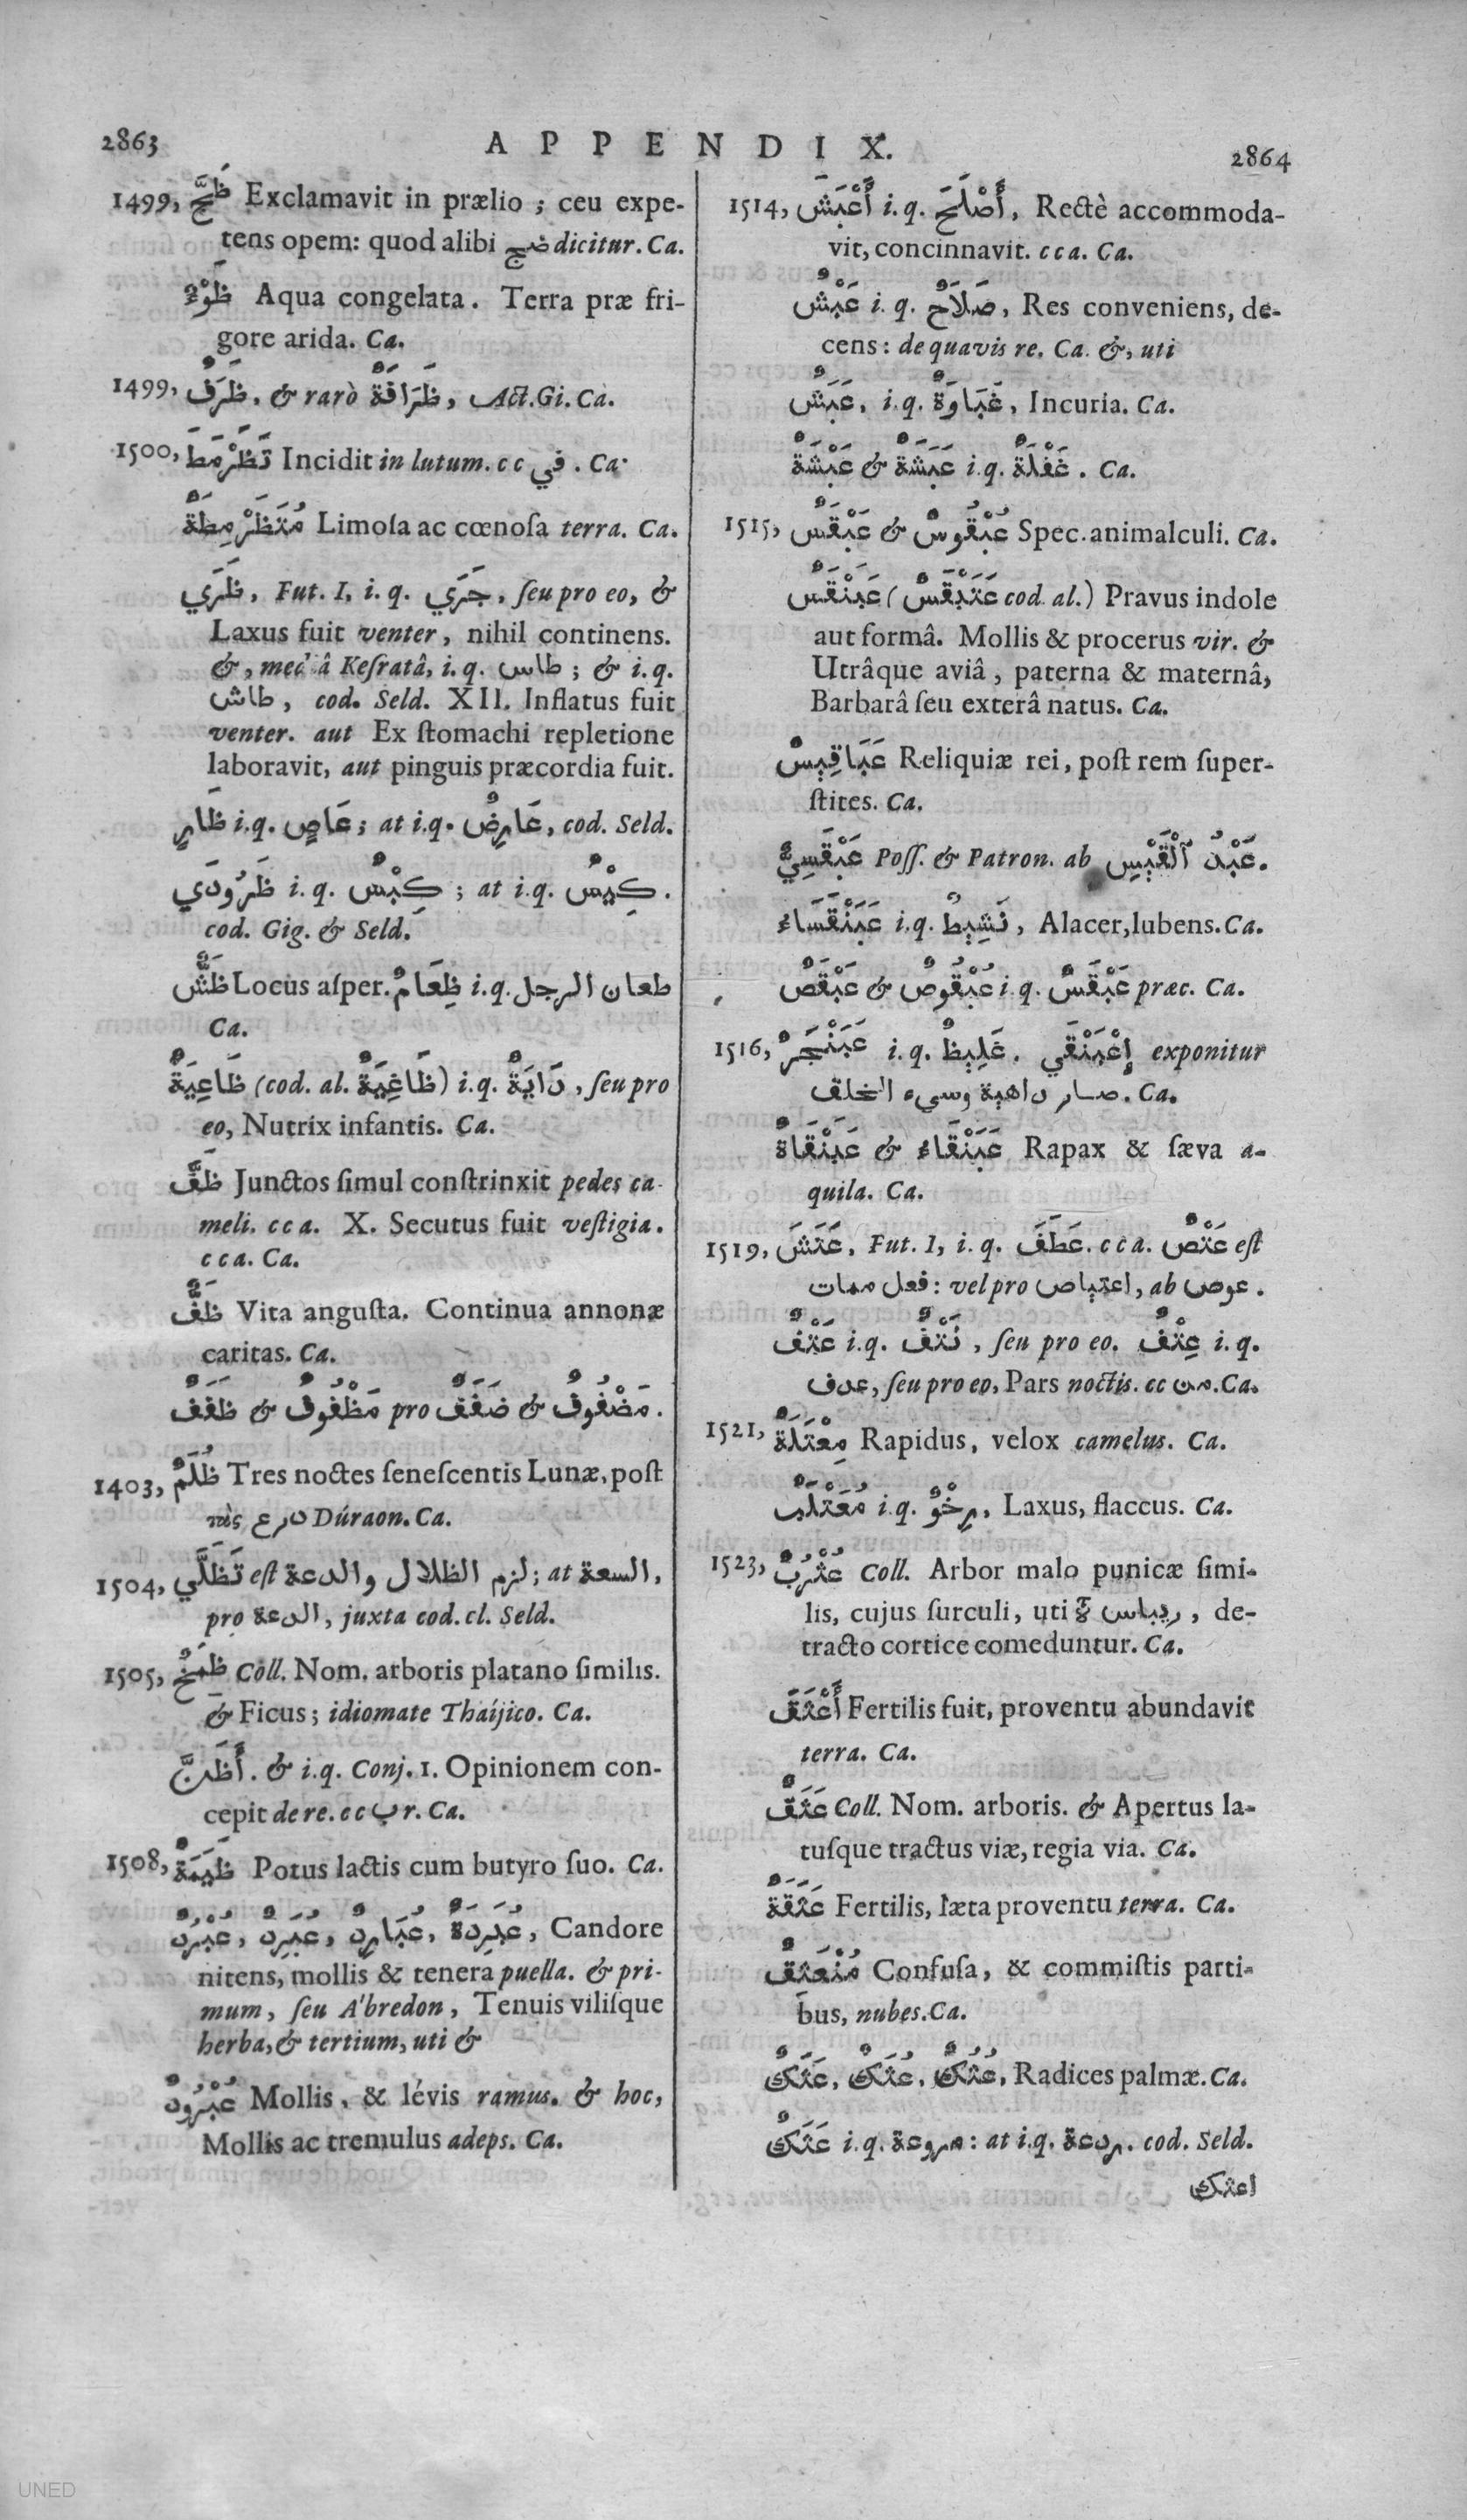 2863
APPENDIX.
2864
1499, ظَجَّ Exclamavit in prælio ; ceu expe-
tens opem: quod alibi ضج dicitur. Ca.
ظَوْءٌ Aqua congelata. Terra præ fri-
gore arida. Ca.
1499, ظَرَفٌ, & rarò ظَرَافَةٌ, Act. Gi. Ca.
1500, تَظَرْمَطَ Incidit in lutum. cc في. Ca.
مُتَظَرْمِطَةٌ Limoſa ac cœnoſa terra. Ca.
ظَرَي, Fut. I, i. q. جَرَي, ſeu pro eo, &
Laxus fuit venter, nihil continens.
&, mediâ Keſratâ, i. q. طاس ; & i. q.
طاش, cod. Seld. XII. Inflatus fuit
venter. aut Ex ſtomachi repletione
laboravit, aut pinguis præcordia fuit.
ظَارٍ i.q. عَاصٍ ; at i.q. عَارِضٌ, cod. Seld.
ظَرُودَي i. q. كِبْسٌ ; at i. q. كِيْسٌ.
cod. Gig. & Seld.
ظَشٌّ Locus aſper. ظِعَامٌ i.q. طعان الرجل
Ca.
ظَاعِيَةٌ (cod. al. ظَاغِيَةٌ) i.q. دَايَةٌ, ſeu pro
eo, Nutrix infantis. Ca.
ظَفَّ Junctos ſimul conſtrinxit pedes ca-
meli. cc a. X. Secutus fuit veſtigia.
cc a. Ca.
ظَفٌّ Vita anguſta. Continua annonæ
caritas. Ca.
ظَفَفٌ & مَظْفُوفٌ pro ضَفَفٌ & مَضْفُوفٌ.
1403, ظُلَمٌ Tres noctes ſeneſcentis Lunæ, poſt
τὰς درع Dúraon. Ca.
1504, تَظَلَّي eſt لزم الظلال والدعة ; at السعة,
pro الدعة, juxta cod. cl. Seld.
1505, ظِمْخٌ Coll. Nom. arboris platano ſimilis.
& Ficus ; idiomate Thaijico. Ca.
أَظَنَّ. & i.q. Conj. 1. Opinionem con-
cepit de re. cc ب r. Ca.
1508, ظَيْمَةٌ Potus lactis cum butyro ſuo. Ca.
عُبْرُدٌ, عُبَرِدٌ, عُبَارِدٌ, عُبَرِدَةٌ, Candore
nitens, mollis & tenera puella. & pri-
mum, ſeu A'bredon, Tenuis viliſque
herba, & tertium, uti &
عُبْرُودٌ Mollis, & lévis ramus. & hoc,
Mollis ac tremulus adeps. Ca.
1514, أَعْبَشَ i. q. أَصْلَحَ, Rectè accommoda-
vit, concinnavit. cc a. Ca.
عَبْشٌ i. q. صَلَاحٌ, Res conveniens, de-
cens: de quavis re. Ca. &, uti
عَبَشٌ, i. q. غَبَاوَةٌ, Incuria. Ca.
عَبْشَةٌ & عَبَشَةٌ i.q. غَفْلَةٌ. Ca.
1515, عَبْقَسٌ & عُبْقُوسٌ Spec. animalculi. Ca.
عَبَنْقَسٌ (عَتَبْقَسٌ cod. al.) Pravus indole
aut formâ. Mollis & procerus vir. &
Utrâque aviâ, paterna & maternâ,
Barbarâ ſeu exterâ natus. Ca.
عَبَاقِيسٌ Reliquiæ rei, poſt rem ſuper-
ſtites. Ca.
عَبْقَسِيٌّ Poſſ. & Patron. ab عَبْدُ ٱلْقَيْسِ.
عَبَنْقَسَاءُ i.q. نَشِيطٌ, Alacer, lubens. Ca.
عَبْقَصٌ & عُبْقُوصٌ i.q. عَبْقَسٌ præc. Ca.
1516, عَبَنْجَرٌ i. q. غَلِيظٌ. إِعْبَنْقَي exponitur
صار داهية وسيء الخلق. Ca.
عَبَنْقَاةٌ & عَبَنْقَاءُ Rapax & ſæva a-
quila. Ca.
1519, عَتَشَ, Fut. I, i. q. عَطَفَ. cc a. عَتْصٌ eſt
فعل ممات : vel pro اعتياص, ab عوص.
عَتْفٌ i.q. نَتْفٌ, ſeu pro eo. عِتْفٌ i. q.
عدف, ſeu pro eo, Pars noctis. cc من. Ca.
1521, مِعْتَلَةٌ Rapidus, velox camelus. Ca.
مُعَتْلَبٌ i.q. رِخْوٌ, Laxus, flaccus. Ca.
1523, عُثْرُبٌ Coll. Arbor malo punicæ ſimi-
lis, cujus ſurculi, uti ريباس, de-
tracto cortice comeduntur. Ca.
أَعْثَقَ Fertilis fuit, proventu abundavit
terra. Ca.
عَثَقٌ Coll. Nom. arboris. & Apertus la-
tuſque tractus viæ, regia via. Ca.
عَثَقَةٌ Fertilis, læta proventu terra. Ca.
مُنْعَثِقٌ Confuſa, & commiſtis parti-
bus, nubes. Ca.
عَثَكٌ, عُثَكٌ, عُثُكٌ, Radices palmæ. Ca.
عَثَكٌ i.q. هروعة : at i.q. ردعة. cod. Seld.
اعثك
UNED